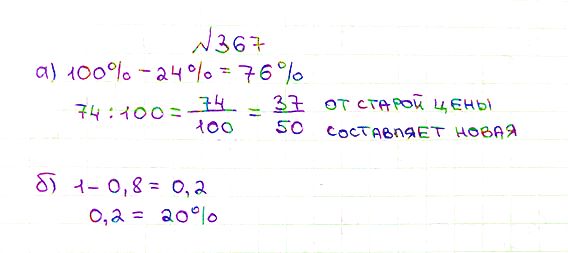 №367
а) 100% - 24% = 76%
74 : 100 = 74/100 = 37/50 ОТ СТАРОЙ ЦЕНЫ
СОСТАВЛЯЕТ НОВАЯ
б) 1 - 0,8 = 0,2
0,2 = 20%